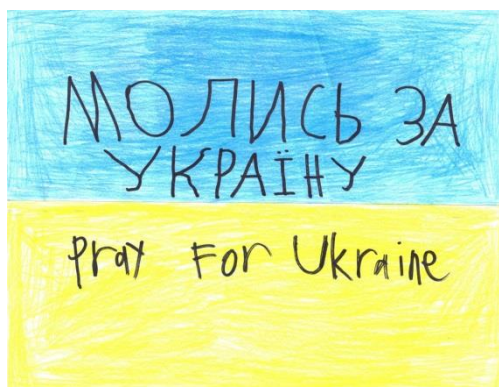 МОЛИСЬ ЗА
УКРАЇНУ
Pray For Ukraine